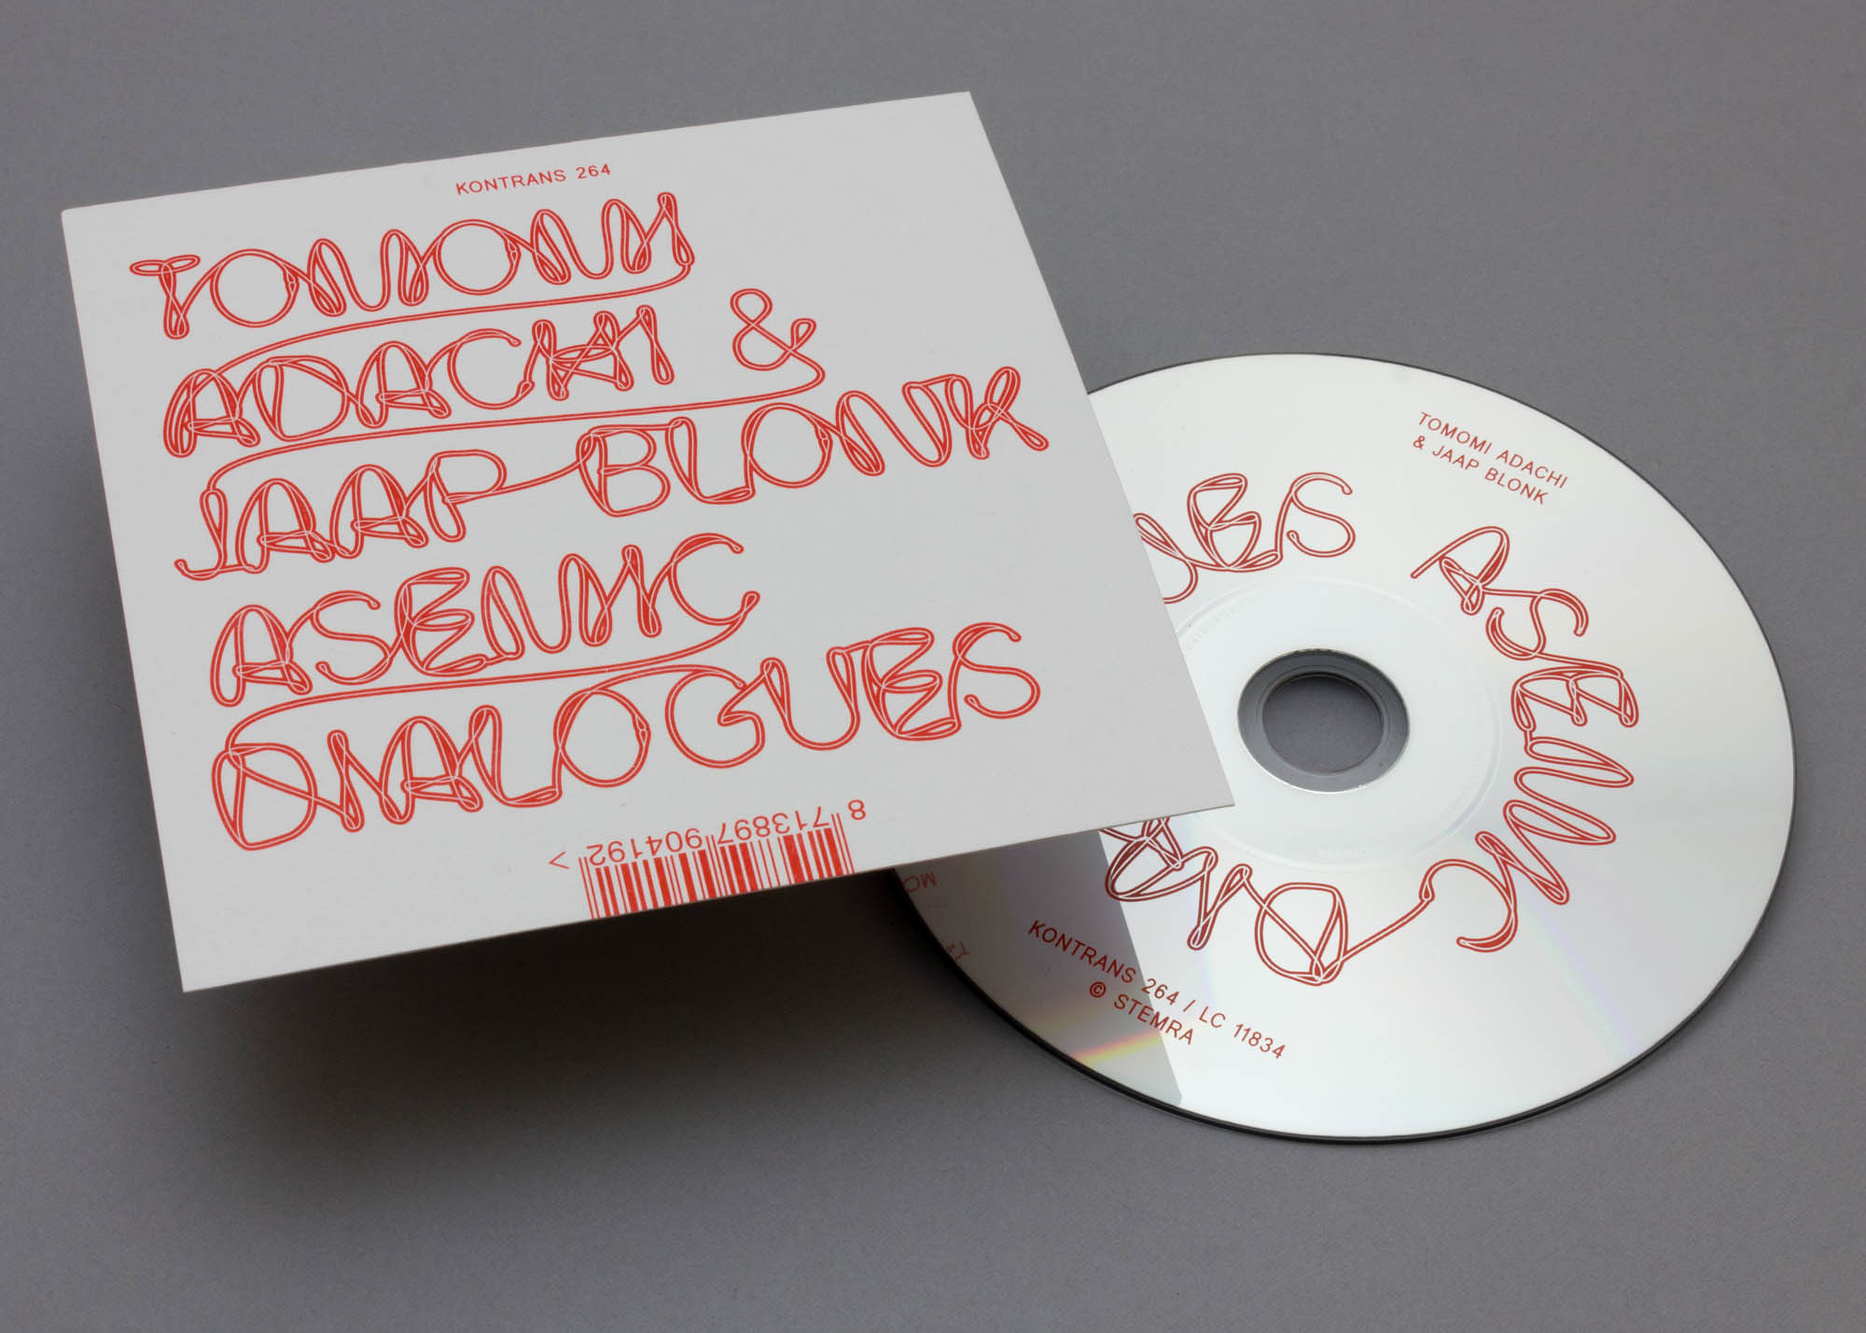 KONTRANS 264
TOMOMI
ADACHI &
JAAP BLONK
ASEMIC
DIALOGUES
8 713897 904192 >
TOMOMI ADACHI
& JAAP BLONK
ASEMIC DIA
UES
KONTRANS 264 / LC 11834
© STEMRA